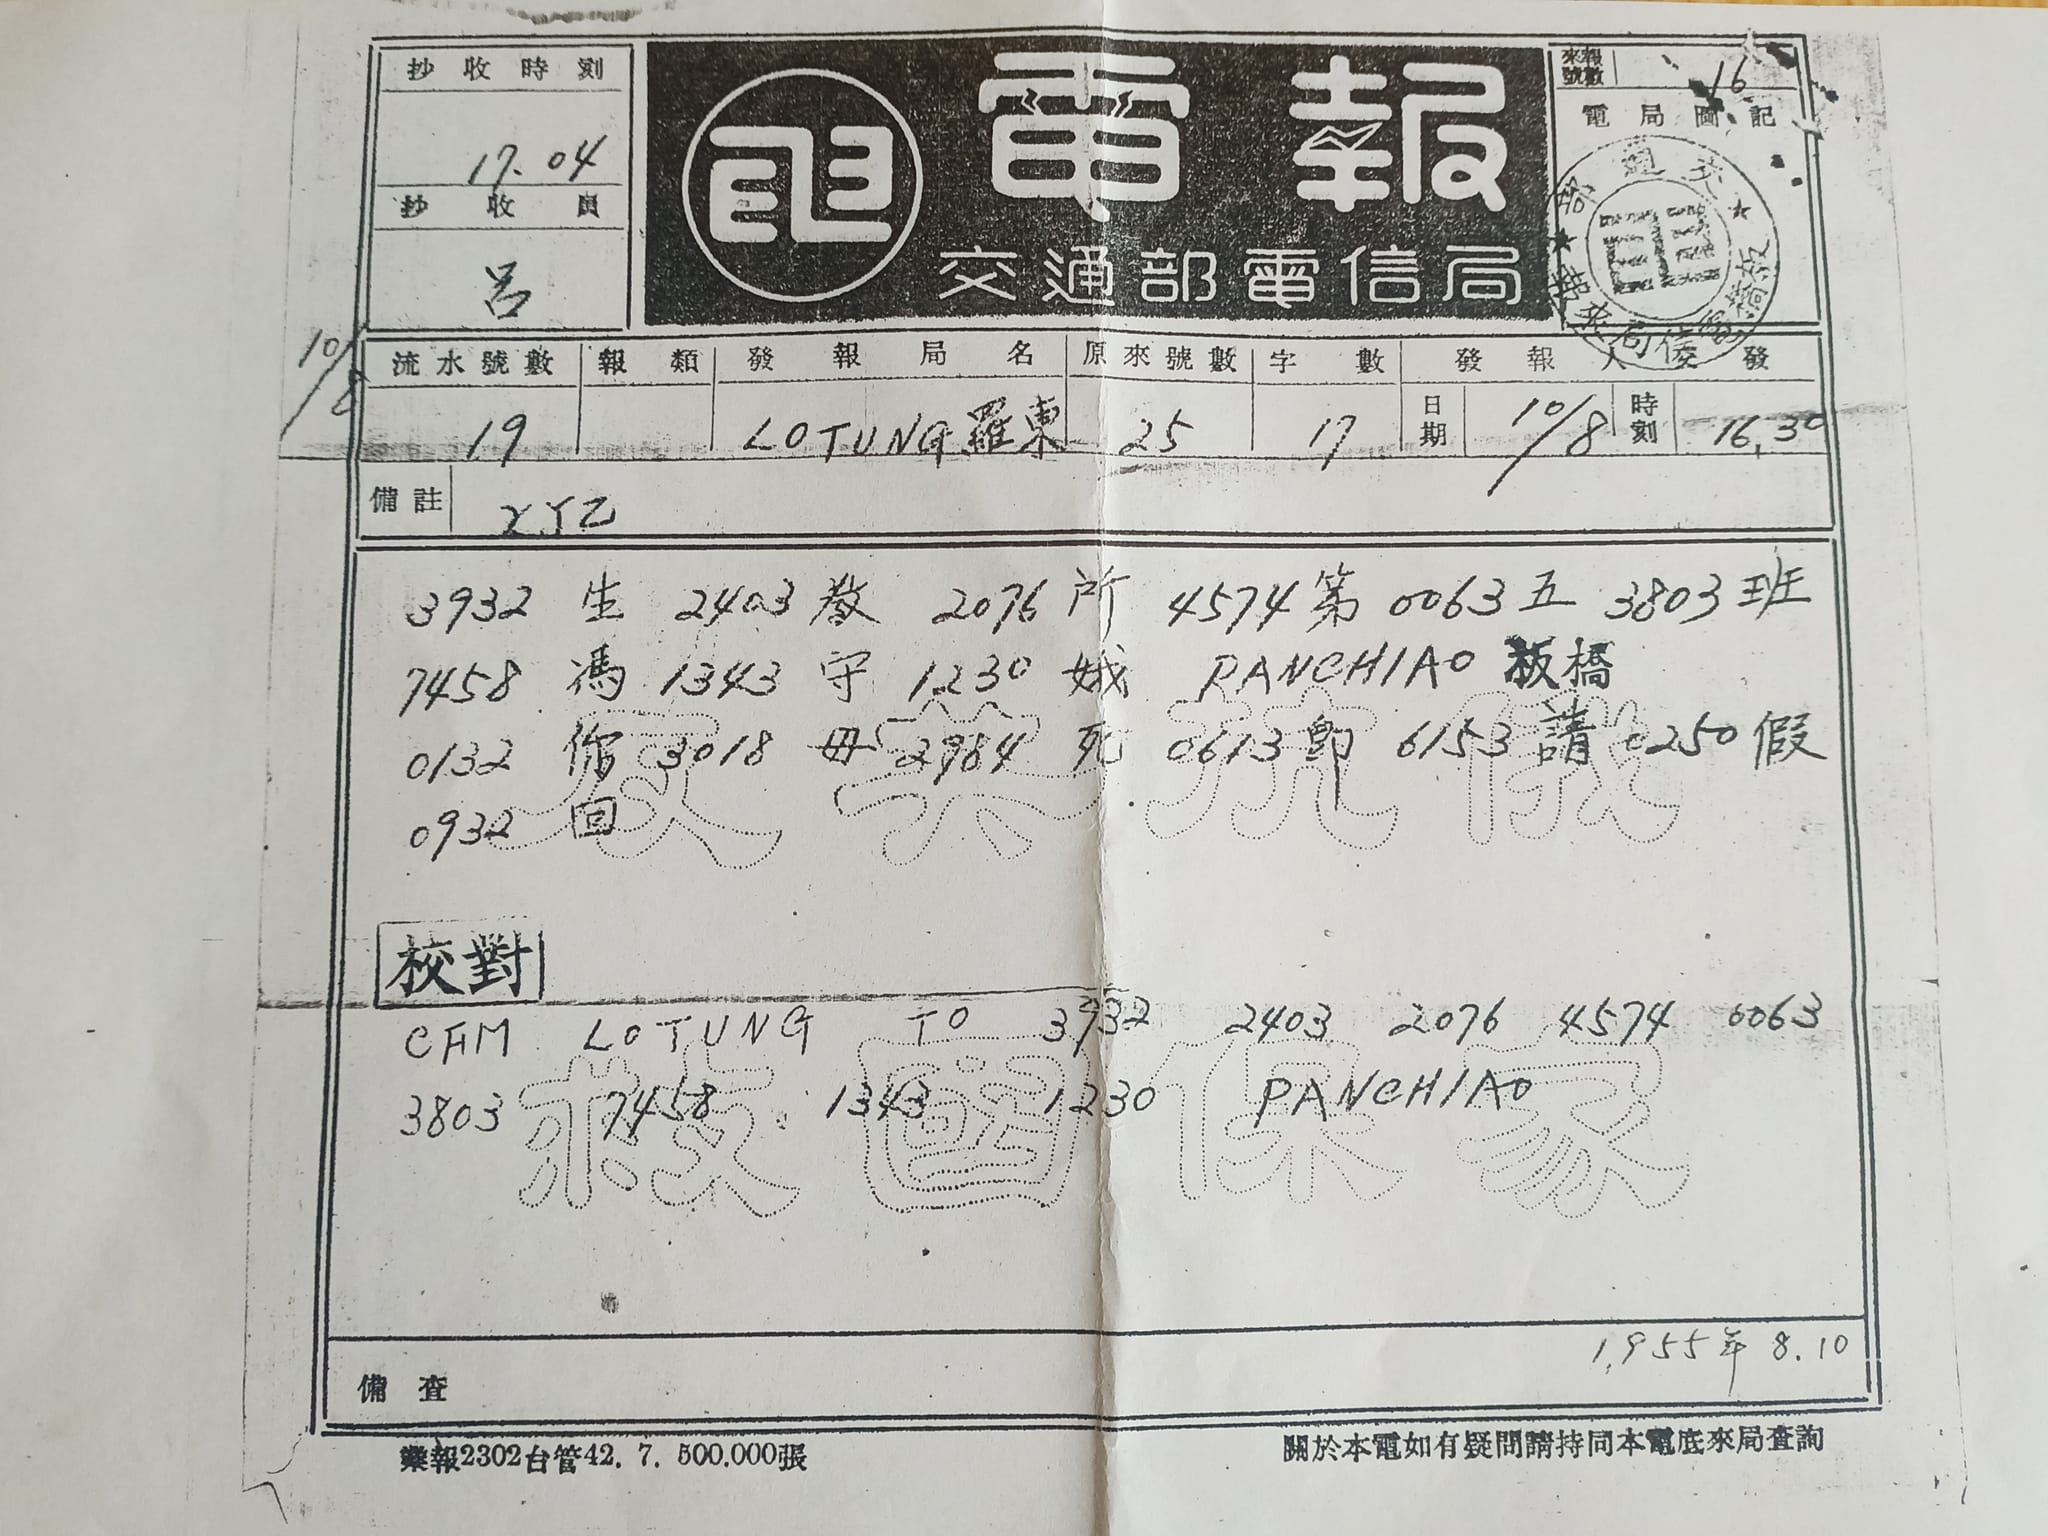 抄收時刻
17.04
抄收員
呂
電報
交通部電信局
來報號數 16
電局圖記
10/8
流水號數 報類 發報局名 原來號數 字數 發報人交發
19 LOTUNG 羅東 25 17 日期 10/8 時刻 16,30
備註
3932 生 2403 教 2076 所 4574 第 0063 五 3803 班
7458 馮 1343 守 1230 娥 PANCHIAO 板橋
0132 你 3018 母 2984 死 0613 即 6153 請 0250 假
0932 回
校對
CFM LOTUNG TO 3932 2403 2076 4574 0063
3803 7458 1343 1230 PANCHIAO
救國保家
1955年 8.10
備查
業報2302台管42. 7. 500.000張
關於本電如有疑問請持同本電底來局查詢